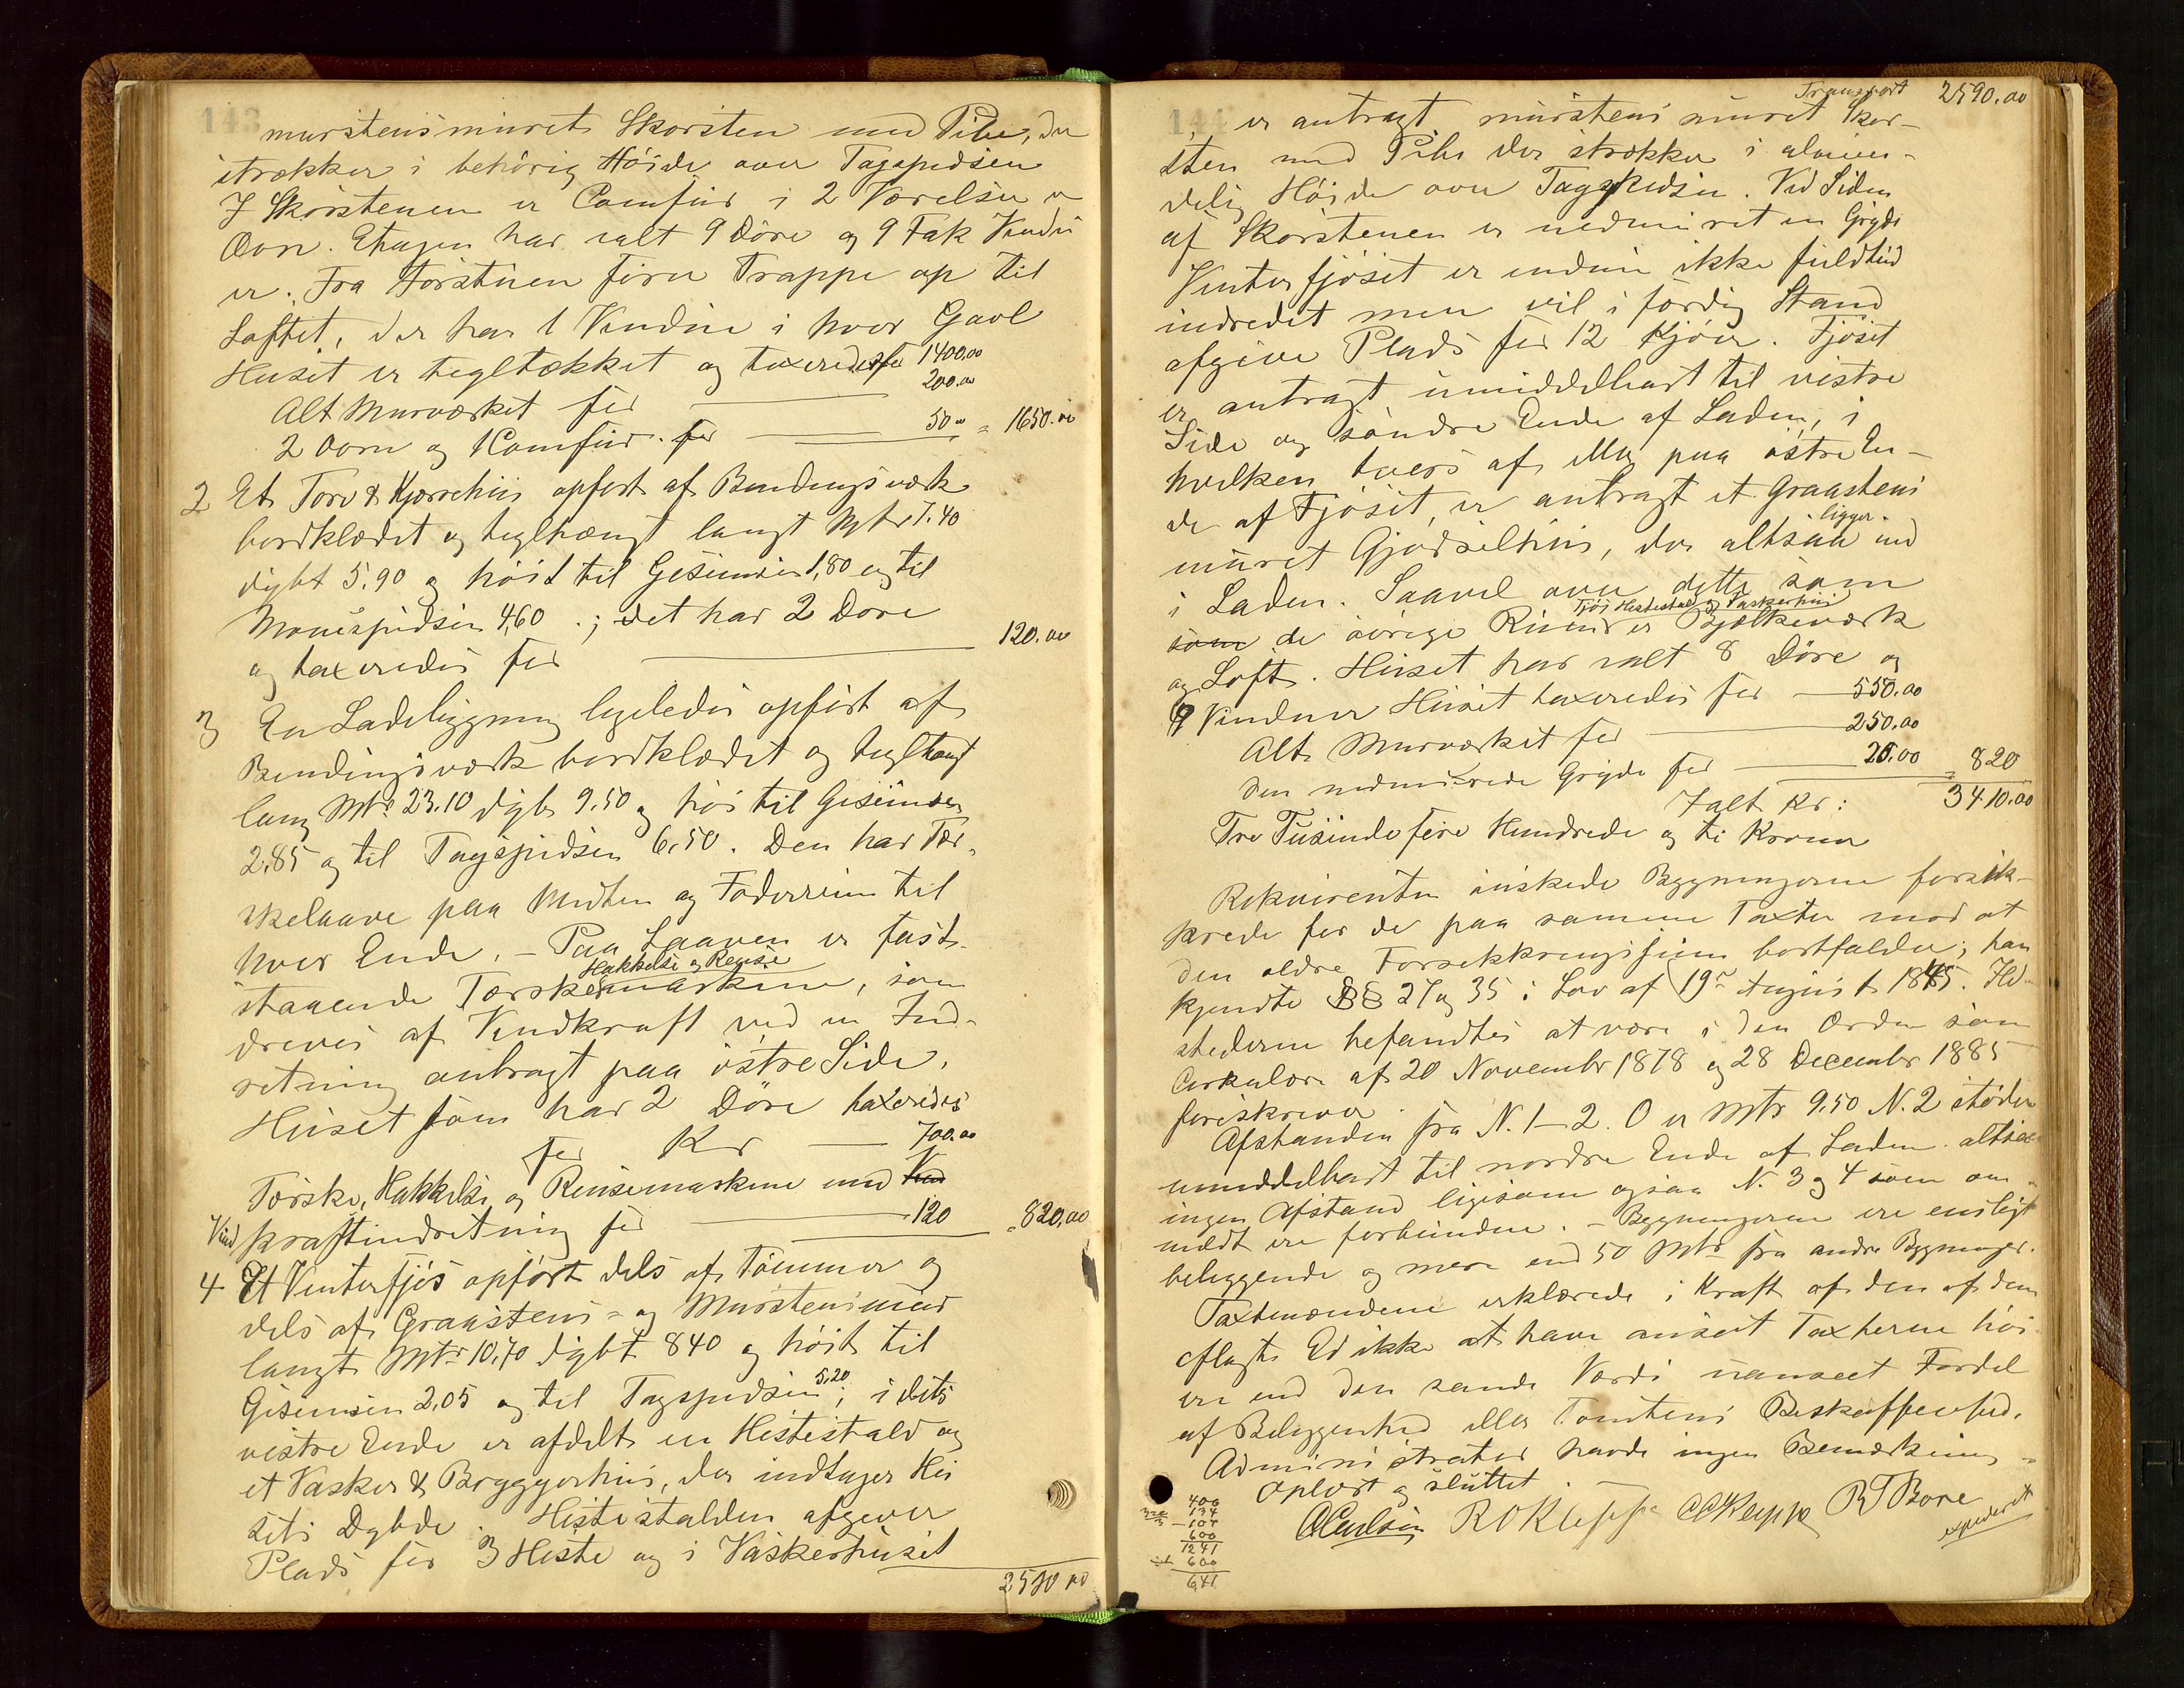 143
murstensmuret Skorsten med Pibe, der
strækker i behörig Höide over Tagspidsen
I Skorstenen er Comfür i 2 Værelser er
Ovn. Etagen har ialt 9 Döre og 9 Fak Vindu
er. Fra Forstuen förer Trappe op til
Loftet, der har 1 Vindue i hver Gavl
Huset er tegltækket og taxeredes for 1400.00
Alt Murværket for 200.00
2 Ovne og 1 Comfür for 50 00 = 1650.00
2 Et Torv & Kjærrehus opfört af Bindingsværk
bordklædet og teglhængt langt Mtr 7.40
dybt 5.90 og höit til Gesimsen 1,80 og til
Mönespidsen 4,60 .; det har 2 Döre
og taxeredes for 120.00
3 En Ladebygning ligeledes opfört af
Bindingsværk bordklædet og teglhængt
lang Mtr 23.10 dyb 9.50 og höi til Gesimsen
2.85 og til Tagspidsen 6.50. Den har Tær-
skelaave paa Midten og Foderrum til
hver Ende. – Paa Laaven er fast-
Hakkelse og Rense
staaende Tærskemaskine, som
drives af Vindkraft ved en Ind-
retning anbragt paa östre Side.
Huset som har 2 Döre taxeredes
for Kr 700.00
Tærske, Hakkelse og Rensemaskine med Vind
Vind kraftindretning for 120 = 820,00
4 Et Vinterfjös opfört dels af Tömmer og
dels af Graastens- og Murstensmur
langt Mtr 10,70 dybt 840 og höit til
Gesimsen 2,05 og til Tagspidsen 5,20; i dets
vestre Ende er afdelt en Hestestald og
et Vasker & Bryggerhus, der indtager Hu
sets Dybde. Hestestalden afgiver
Plads for 3 Heste og i Vaskerhuset
2590 00
144 Transport 2590.00
er anbragt murstens muret Skor-
sten med Pibe der strækker i alminde-
delig Höide over Tagspidsen. Ved Siden
af Skorstenen er nedmuret en Gryde
Vinterfjöset er endnu ikke fuldtud
indredet men vil i færdig Stand
afgive Plads for 12 Kjöer. Fjöset
er anbragt umiddelbart til vestre
Side og söndre Ende af Laden, i
hvilken tvers af eller paa östre En-
de af Fjöset, er anbragt et Graastens
muret Gjödselhus, der altsaa ligger ind
i Laden. Saavel over dette som
Fjös Hestestald og Vaskerhus
som de övrige Rum er Bjælkeværk
og Loft. Huset har ialt 8 Döre og
9 Vinduer Huset taxeredes for 550.00
Alt Murværket for 250.00
Den nedmurede Gryde for 20.00 = 820
Ialt Kr: 3410.00
Tre Tusinde fire Hundrede og ti Kroner
Rekvirenten önskede Bygningerne forsik-
krede for de paa samme Taxter mod at
den ældre Forsikkringssum bortfalder; han
kjendte §§ 27 og 35 i Lov af 19de August 1845. Ild-
stederne befandtes at være i den Orden som
Cirkulære af 20 Novembr 1878 og 28 Decembr 1885
foreskriver.
Afstanden fra N. 1 – 2. O er Mtr 9.50 N. 2 stöder
umiddelbart til nordre Ende af Laden altsaa
ingen Afstand ligesom ogsaa N. 3 og 4 som om-
meldt ere forbundne. – Bygningerne ere ensligt
beliggende og mere end 50 Mtr fra andre Bygninger.
Taxtmændene erklærede i Kraft af den af dem
aflagte Ed ikke at have ansat Taxterne höi-
ere end den sande Værdi uanseet Fordel
af Beliggenhed eller Tomtens Beskaffenhed.
Administrator havde ingen Bemærkning
Oplæst og sluttet.
CCarlsen R O Kleppe C C Kleppe R T Bore
expederet
400
134
107
600
1241
600
641